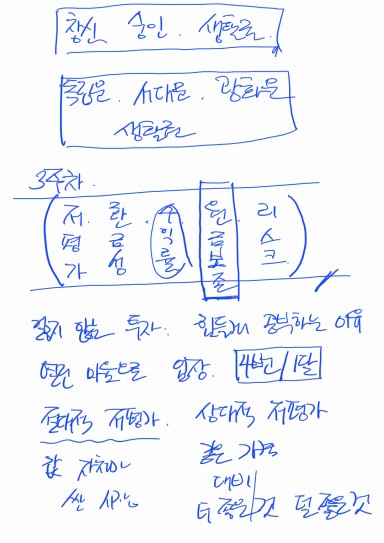 창신 숭인 생활권.
독립문. 서대문. 광화문
생활권
3주차.
저평가 환금성 수익률 원금보존 리스크
잃지 않는 투자. 힘들게 공부하는 이유
열린 마음으로 입장. 4번/1달
절대적 저평가. 상대적 저평가
값 자체가 같은 가격
싼 시기 대비
더 좋은것 덜 좋은것